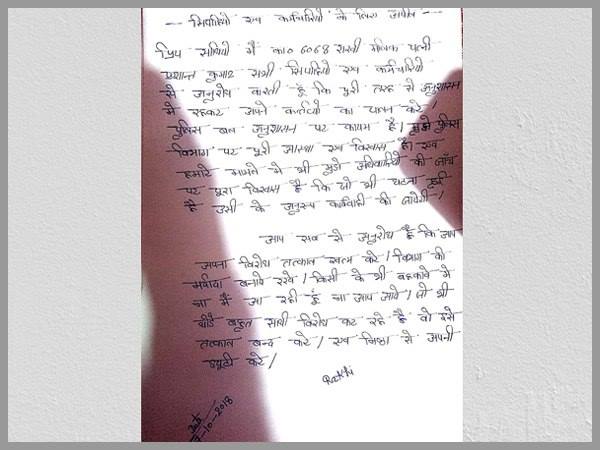 -- सिपाहियो एवं कर्मचारियो के लिए अपील --
प्रिय साथियों मैं का० 6068 राखी मलिक पत्नी
प्रशान्त कुमार सभी सिपाहियो एवं कर्मचारियो
से अनुरोध करती हूँ कि पूरी तरह से अनुशासन
मे रहकर अपने कर्तव्यो का पालन करे।
पुलिस बल अनुशासन पर कायम है। मुझे पुलिस
विभाग पर पूरी आस्था एवं विश्वास है। एवं
हमारे मामले मे भी मुझे अधिकारियो की जाँच
पर पूरा विश्वास है कि जो भी घटना हुई
है उसी के अनुरूप कार्यवाही की जायेगी।
आप सब से अनुरोध है कि आप
अपना विरोध तत्काल खत्म करे। विभाग की
मर्यादा बनाये रखे। किसी के भी बहकावे मे
ना मैं आ रही हूं ना आप आये। जो भी
थोडे बहुत साथी विरोध कर रहे है वो इसे
तत्काल बन्द करे। एवं निष्ठा से अपनी
ड्यूटी करे।
Rakhi
Date
-10-2018